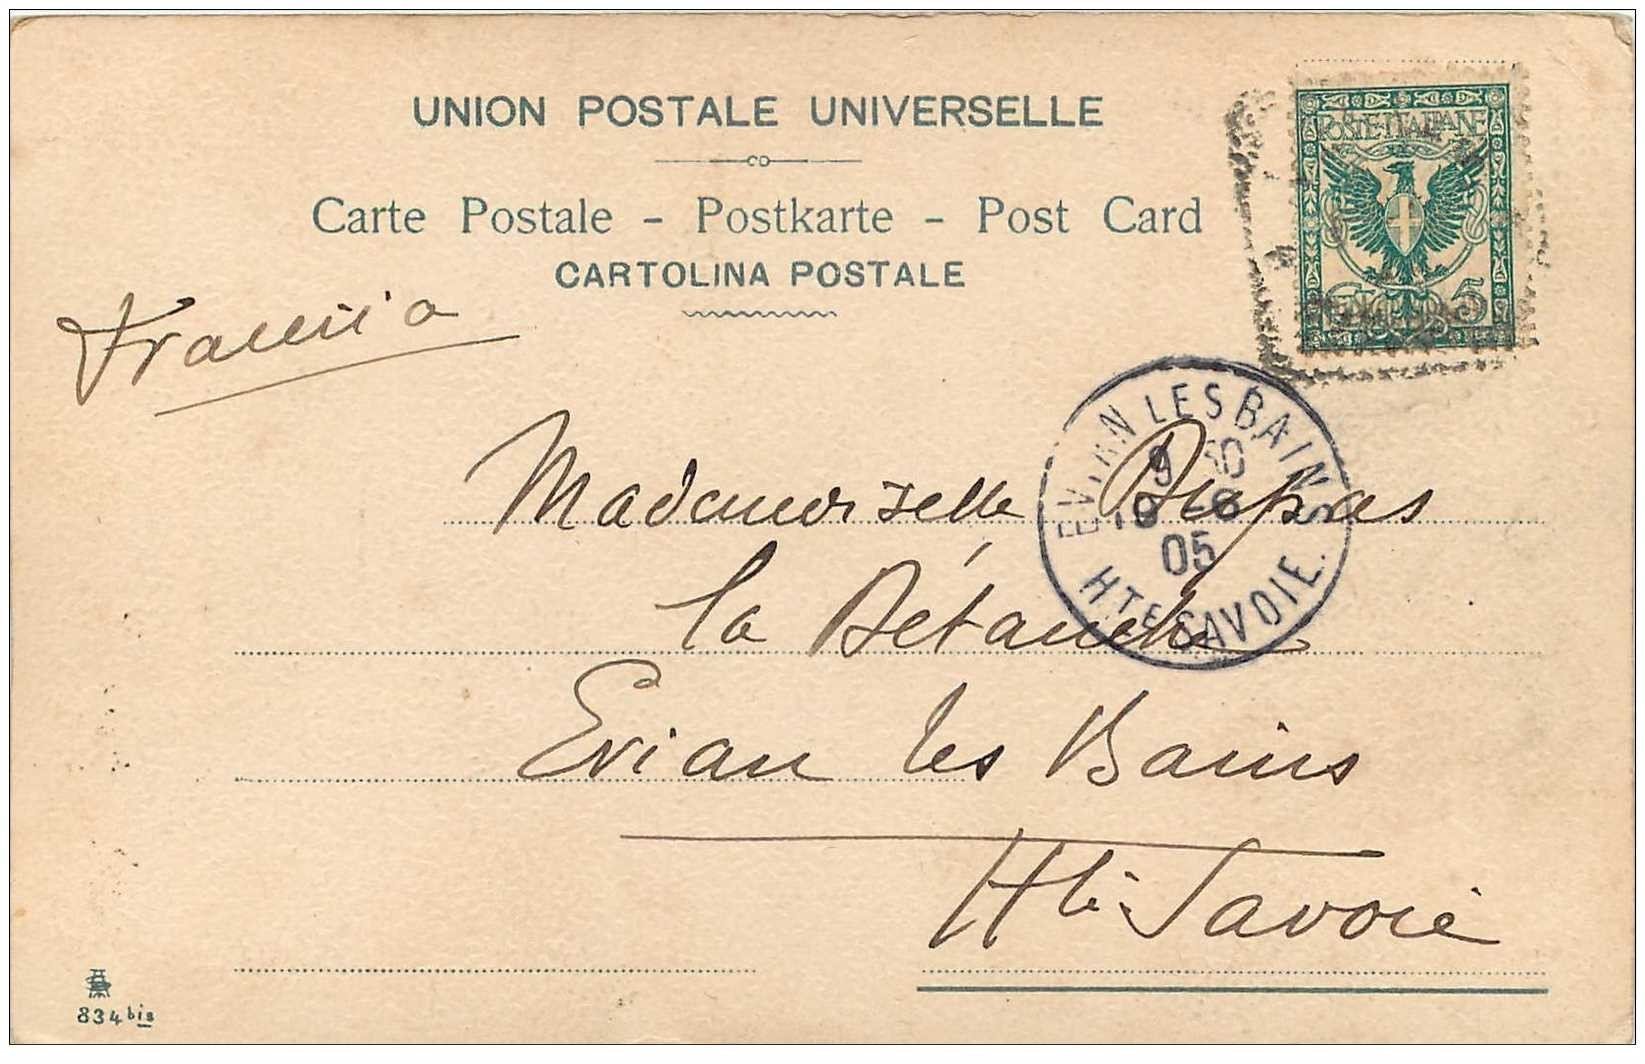 UNION POSTALE UNIVERSELLE
Carte Postale - Postkarte - Post Card
CARTOLINA POSTALE
POSTE·ITALIANE
5
Francia
EVIAN LES BAINS
05
Hte SAVOIE.
Mademoiselle Dupas
la Détanche
Evian les Bains
Hte Savoie
834 bis